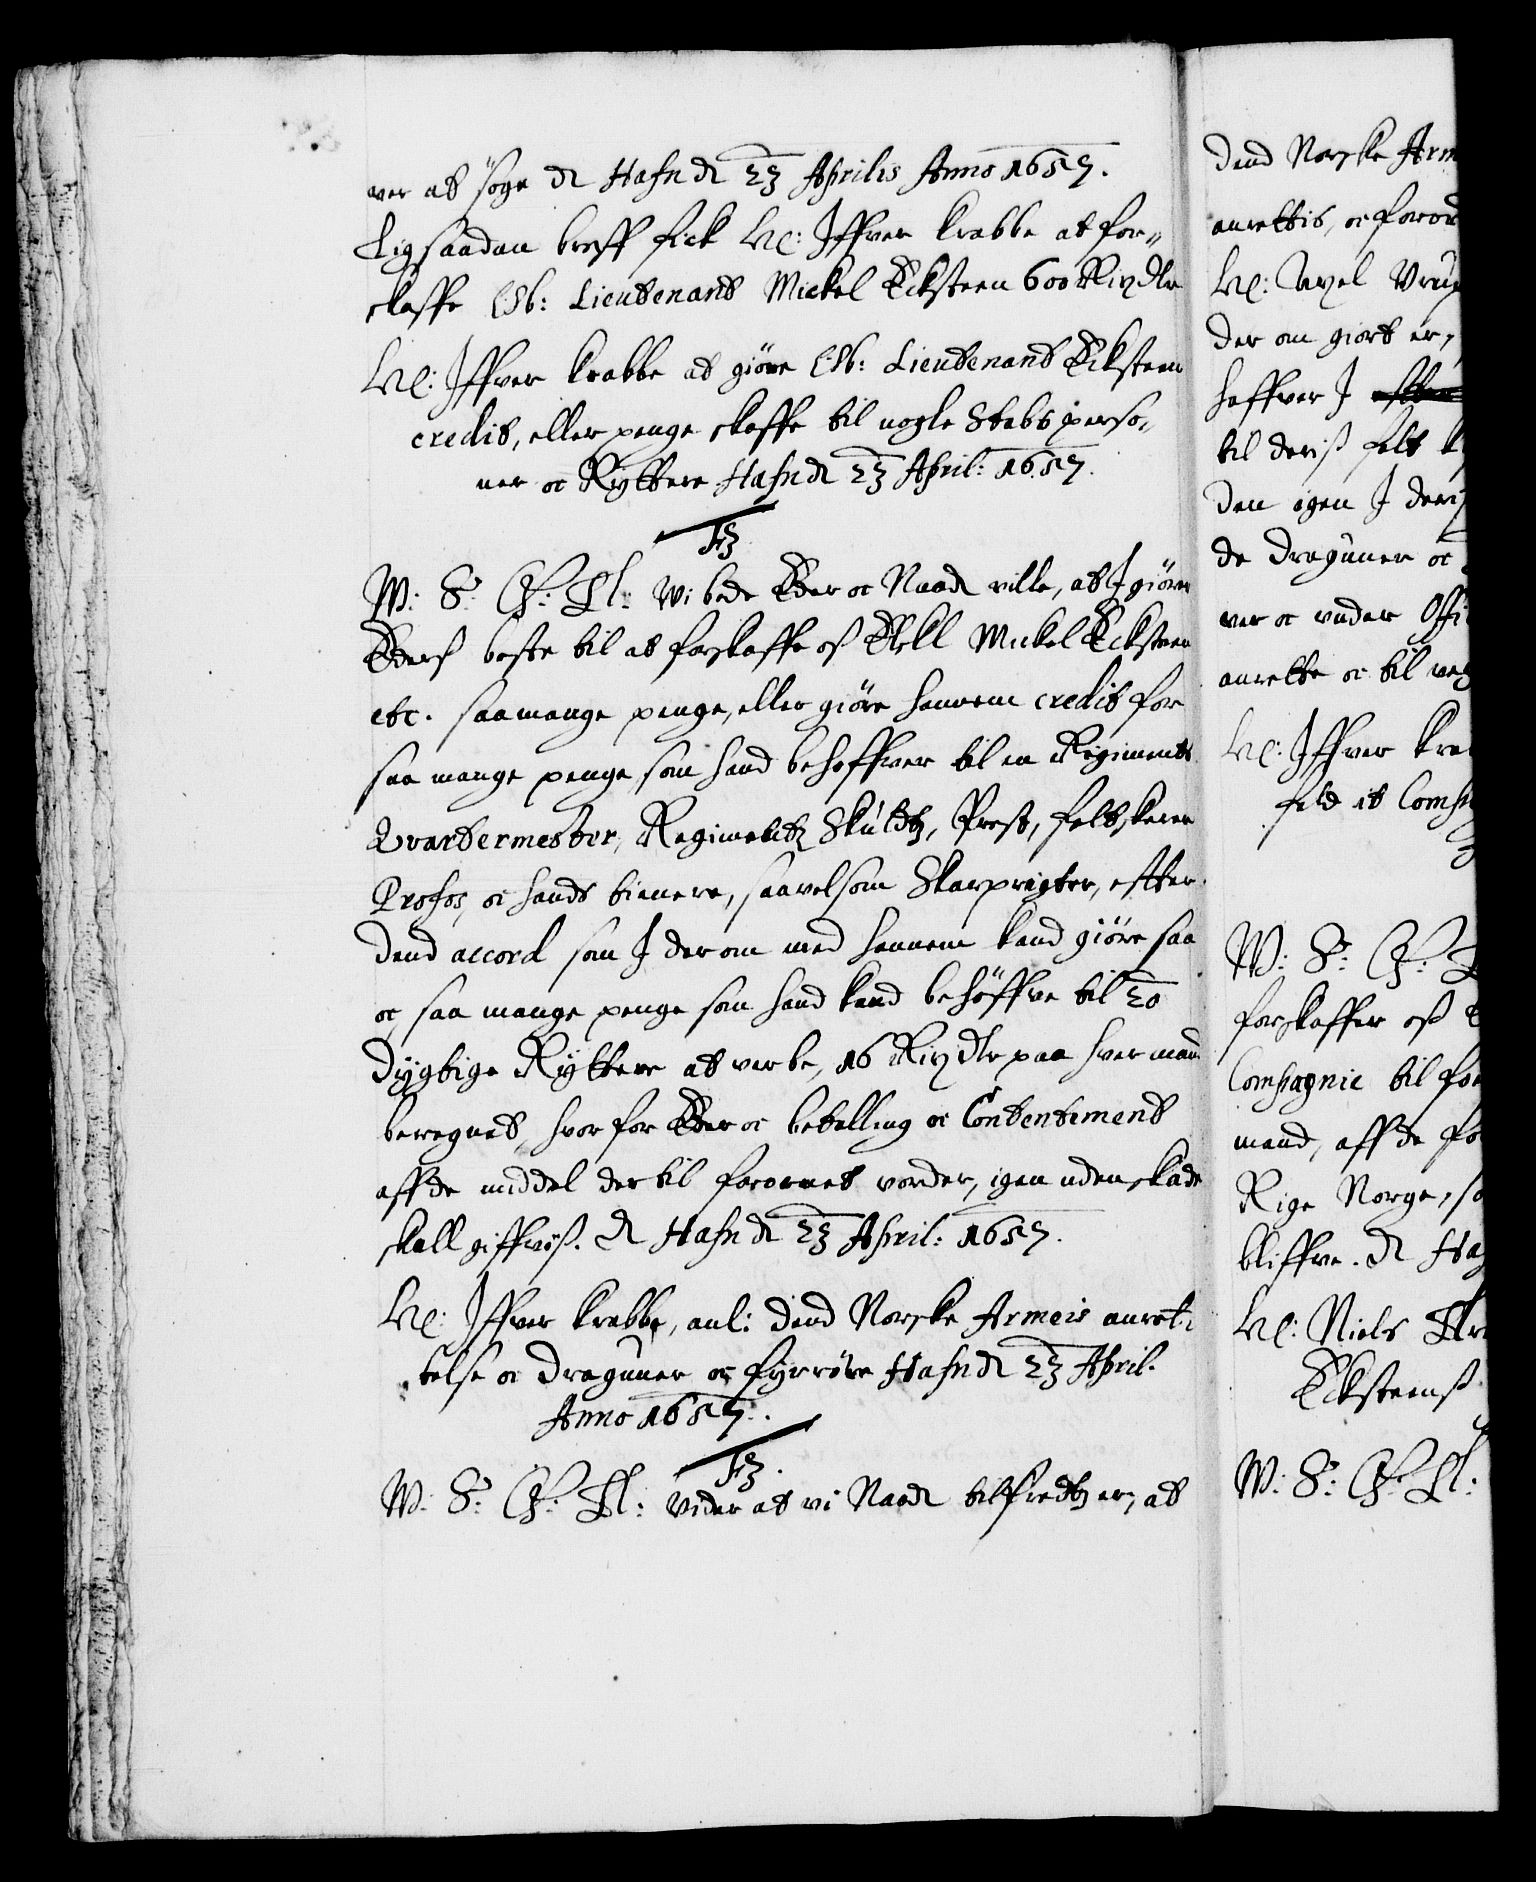 ver at söge etc Hafn etc 23 Aprilis Anno 1657.
Ligsaadan breff fick Hr: Iffver Krabbe at for„
skaffe Ob: Lieutenant Mickel Eksteen 600 Rix dlr
Hr: Iffver Krabbe at giöre Ob: Lieutenant Eksteen
credit, eller penge skaffe til nogle Stabs perso„
ner oc Ryttere Hafn etc 23 April: 1657.
F3
W: S: G: T: Vi bede Eder oc Naad ville, at I giöre
Eders beste til at forskaffe oss Elskl Mickel Eksteen
etc. saa mange penge, eller giöre hannem credit for
saa mange penge, som hand behoffver til en Regiments
Qvartermester, Regimentz Skultz, Prest, feltskerer
Profos, oc hands tienere, saavelsom Skarprigter, effter
dend accord som I der om med hannem kand giöre saa
oc saa mange penge som hand kand behöffve til 20
dygtige Ryttere at verbe, 16 Rix dlr paa hver mand
beregnet, hvorfor Eder oc betalling oc Contentement
aff de middel dertil forornet vorder, igen uden skade
skall giffvess. etc Hafn etc 23 April: 1657.
Hr: Iffver Krabbe, anl: dend Norske Armeis anret„
telse oc Draguner oc fyrröre Hafn etc 23 April.
Anno 1657.
F3.
W: S: G: T: Vider at vi Naad tilfredtz er, at
dend Norske Arm
anrettis, oc foror
Hr: Axel Vrup
der om giort er,
haffver I
til deris felt
den igen I deris
de Draguner oc
ver oc under Offi
anrette oc til veg
Hr: Iffver Kra
feld it Comp
W: S: G: T
forskaffer oss E
Compagnie til for
mand, aff de for
Rige Norge, so
bliffve. etc Haf
Hr: Niels Kra
Eksteenss
W: S: G: T: